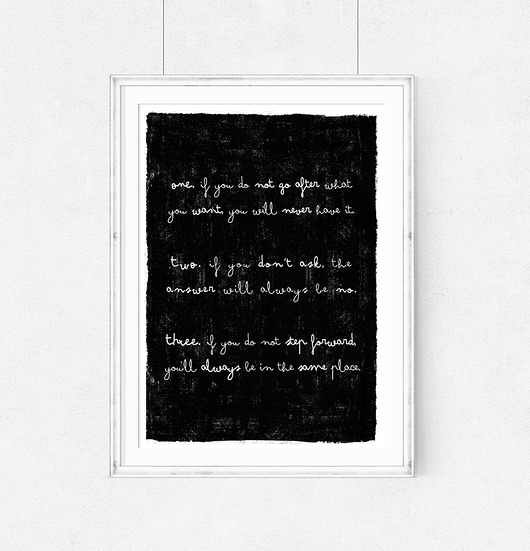 one. if you do not go after what
you want, you will never have it.
two. if you don't ask, the
answer will always be no.
three. if you do not step forward,
you'll always be in the same place.